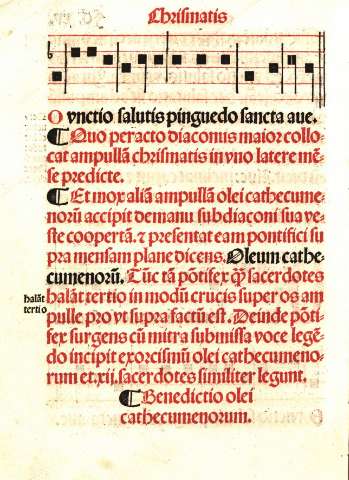 Chrismatis
O vnctio salutis pinguedo sancta aue.
¶ Quo peracto diaconus maior collo-
cat ampullā chrismatis in vno latere mē-
se predicte.
¶ Et mox aliā ampullā olei cathecume-
norū accipit de manu subdiaconi sua ve-
ste coopertā. ⁊ presentat eam pontifici su
pra mensam plane dicens. Oleum cathe-
cumenorū. Tūc tā pōtifex ꝙ̄ sacerdotes
halāt tertio in modū crucis super os am
pulle pro vt supra factū est. Deinde pōti-
fex surgens cū mitra submissa voce legē-
do incipit exorcismū olei cathecumeno-
rum et .xij. sacerdotes similiter legunt.
halāt
tertio
¶ Benedictio olei
cathecumenorum.